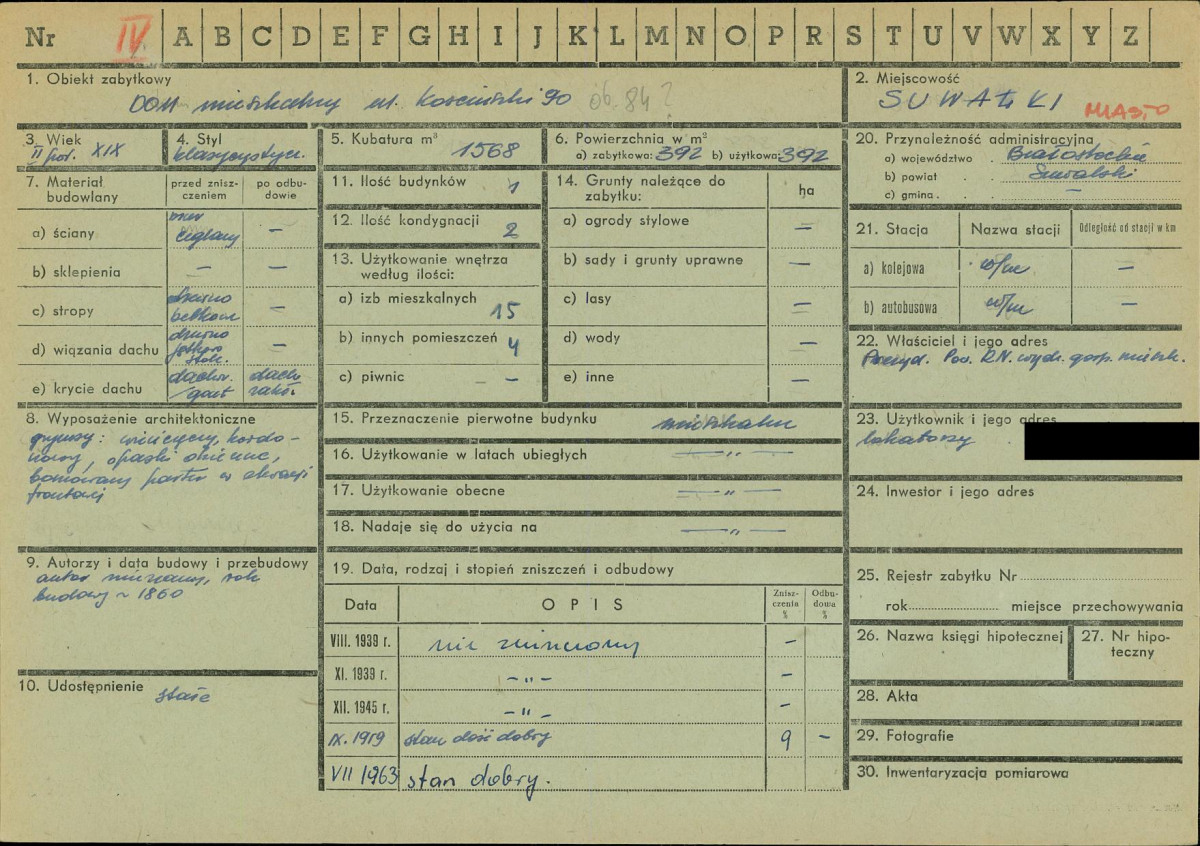 Nr IV A B C D E F G H I J K L M N O P R S T U V W X Y Z
1. Obiekt zabytkowy
Dom mieszkalny ul. Kościuszki 90 ob. 84?
2. Miejscowość
SUWAŁKI MIASTO
3. Wiek
II poł. XIX
4. Styl
klasycystycz.
5. Kubatura m³ 1568
6. Powierzchnia w m²
a) zabytkowa: 392 b) użytkowa: 392
7. Materiał budowlany
przed zniszczeniem
po odbudowie
a) ściany
ceglany –
b) sklepienia – –
c) stropy
drewno
belkowe –
d) wiązania dachu
drewno
stolc. –
e) krycie dachu
dachów.
/gont
dach.
zakł.
8. Wyposażenie architektoniczne
gzymsy: wieńczący, kordo-
nowy, opaski okienne,
boniowany parter w elewacji
frontowej
9. Autorzy i data budowy i przebudowy
autor nieznany, rok
budowy ~ 1860
10. Udostępnienie stałe
11. Ilość budynków 1
12. Ilość kondygnacji 2
13. Użytkowanie wnętrza
według ilości:
a) izb mieszkalnych 15
b) innych pomieszczeń 4
c) piwnic –
14. Grunty należące do
zabytku: ha
a) ogrody stylowe –
b) sady i grunty uprawne –
c) lasy –
d) wody –
e) inne –
15. Przeznaczenie pierwotne budynku mieszkalne
16. Użytkowanie w latach ubiegłych –„–
17. Użytkowanie obecne –„–
18. Nadaje się do użycia na –„–
19. Data, rodzaj i stopień zniszczeń i odbudowy
Data OPIS Zniszczenia % Odbudowa %
VIII. 1939 r. nie zniszczony –
XI. 1939 r. –„– –
XII. 1945 r. –„– –
IX. 1959 stan dość dobry 9 –
VII 1963 stan dobry.
20. Przynależność administracyjna
a) województwo Białostockie
b) powiat Suwalski
c) gmina –
21. Stacja Nazwa stacji Odległość od stacji w km
a) kolejowa w/m –
b) autobusowa w/m –
22. Właściciel i jego adres
Prezyd. Pow. R.N. wydz. gosp. mieszk.
23. Użytkownik i jego adres
lokatorzy
24. Inwestor i jego adres
25. Rejestr zabytku Nr
rok miejsce przechowywania
26. Nazwa księgi hipotecznej
27. Nr hipo-
teczny
28. Akta
29. Fotografie
30. Inwentaryzacja pomiarowa